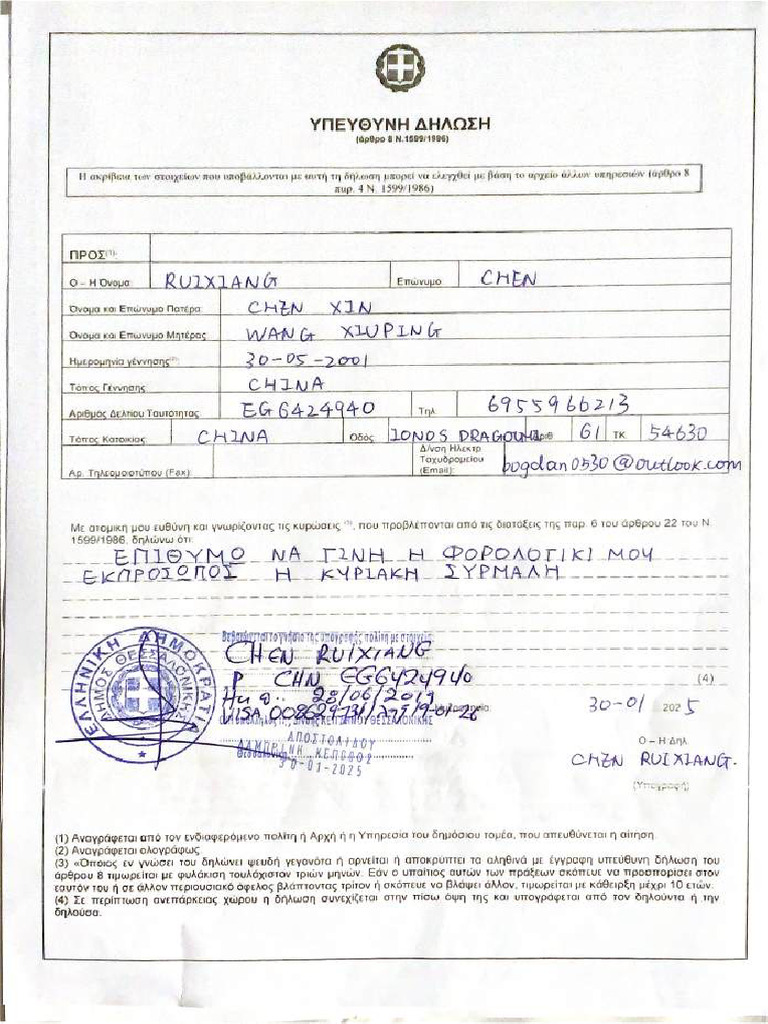 ΥΠΕΥΘΥΝΗ ΔΗΛΩΣΗ
(άρθρο 8 Ν.1599/1986)
Η ακρίβεια των στοιχείων που υποβάλλονται με αυτή τη δήλωση μπορεί να ελεγχθεί με βάση το αρχείο άλλων υπηρεσιών (άρθρο 8
παρ. 4 Ν. 1599/1986)
ΠΡΟΣ(1):
Ο – Η Όνομα: RUIXIANG Επώνυμο: CHEN
Όνομα και Επώνυμο Πατέρα: CHEN XIN
Όνομα και Επώνυμο Μητέρας: WANG XIUPING
Ημερομηνία γέννησης(2): 30-05-2001
Τόπος Γέννησης: CHINA
Αριθμός Δελτίου Ταυτότητας: EG6424940 Τηλ: 6955966213
Τόπος Κατοικίας: CHINA Οδός: IONOS DRAGOUMI Αριθ: 61 ΤΚ: 54630
Αρ. Τηλεομοιοτύπου (Fax): Δ/νση Ηλεκτρ. Ταχυδρομείου (Email): bogdan0530@outlook.com
Με ατομική μου ευθύνη και γνωρίζοντας τις κυρώσεις (3), που προβλέπονται από τις διατάξεις της παρ. 6 του άρθρου 22 του Ν.
1599/1986, δηλώνω ότι:
ΕΠΙΘΥΜΩ ΝΑ ΓΙΝΗ Η ΦΟΡΟΛΟΓΙΚΙ ΜΟΥ
ΕΚΠΡΟΣΩΠΟΣ Η ΚΥΡΙΑΚΗ ΣΥΡΜΑΛΗ
ΕΛΛΗΝΙΚΗ ΔΗΜΟΚΡΑΤΙΑ
ΔΗΜΟΣ ΘΕΣΣΑΛΟΝΙΚΗΣ
Βεβαιώνεται το γνήσιο της υπογραφής πολίτη με στοιχεία:
CHEN RUIXIANG
P CHN EG6424940
(4)
Ημ 28/06/2019
VISA
ΘΕΣΣΑΛΟΝΙΚΗΣ
Ημερομηνία: 30-01 2025
ΑΠΟΣΤΟΛΙΔΟΥ
ΛΑΜΠΡΙΝΗ ΚΕΠ0602
30-01-2025
Ο – Η Δηλ.
CHEN RUIXIANG.
(Υπογραφή)
(1) Αναγράφεται από τον ενδιαφερόμενο πολίτη ή Αρχή ή η Υπηρεσία του δημόσιου τομέα, που απευθύνεται η αίτηση.
(2) Αναγράφεται ολογράφως.
(3) «Όποιος εν γνώσει του δηλώνει ψευδή γεγονότα ή αρνείται ή αποκρύπτει τα αληθινά με έγγραφη υπεύθυνη δήλωση του
άρθρου 8 τιμωρείται με φυλάκιση τουλάχιστον τριών μηνών. Εάν ο υπαίτιος αυτών των πράξεων σκόπευε να προσπορίσει στον
εαυτόν του ή σε άλλον περιουσιακό όφελος βλάπτοντας τρίτον ή σκόπευε να βλάψει άλλον, τιμωρείται με κάθειρξη μέχρι 10 ετών.
(4) Σε περίπτωση ανεπάρκειας χώρου η δήλωση συνεχίζεται στην πίσω όψη της και υπογράφεται από τον δηλούντα ή την
δηλούσα.